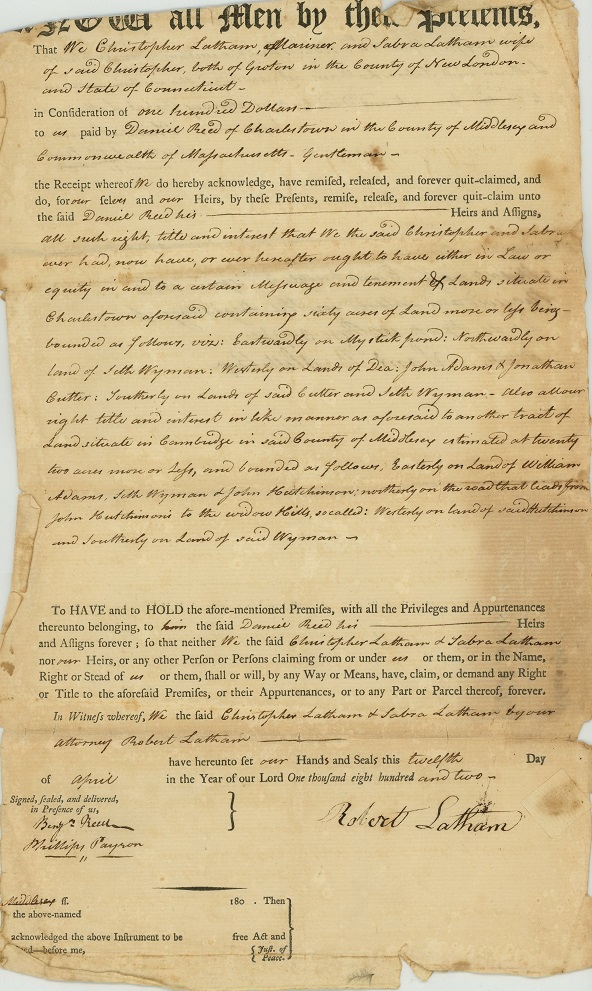 KNOW all Men by these Presents,
That We Christopher Latham, Mariner, and Sabra Latham wife
of said Christopher, both of Groton in the County of New London -
and State of Connecticut -
in Consideration of one hundred Dollars
to us paid by Daniel Reed of Charlestown in the County of Middlesex and
Commonwealth of Massachusetts - Gentleman -
the Receipt whereof We do hereby acknowledge, have remised, released, and forever quit-claimed, and
do, for our selves and our Heirs, by these Presents, remise, release, and forever quit-claim unto
the said Daniel Reed his Heirs and Assigns,
all such right, title and interest that We the said Christopher and Sabra
ever had, now have, or ever hereafter ought to have either in Law or
equity in and to a certain Messuage and tenement of Lands situate in
Charlestown aforesaid containing sixty acres of Land more or less being -
bounded as follows, viz: Eastwardly on Mystick pond: Northwardly on
land of Seth Wyman: Westerly on Lands of Dea: John Adams & Jonathan
Cutter: Southerly on Lands of said Cutter and Seth Wyman - Also all our
right title and interest in like manner as aforesaid to another tract of
Land situate in Cambridge in said County of Middlesex estimated at twenty
two acres more or Less, and bounded as follows, Easterly on Land of William
Adams, Seth Wyman & John Hutchinson; northerly on the road that leads from
John Hutchinson's to the widow Hills, so called: Westerly on land of said Hutchinson
and Southerly on Land of said Wyman -
To HAVE and to HOLD the afore-mentioned Premises, with all the Privileges and Appurtenances
thereunto belonging, to him the said Daniel Reed his Heirs
and Assigns forever; so that neither We the said Christopher Latham & Sabra Latham
nor our Heirs, or any other Person or Persons claiming from or under us or them, or in the Name,
Right or Stead of us or them, shall or will, by any Way or Means, have, claim, or demand any Right
or Title to the aforesaid Premises, or their Appurtenances, or to any Part or Parcel thereof, forever.
In Witness whereof, We the said Christopher Latham & Sabra Latham by our
attorney Robert Latham
have hereunto set our Hands and Seals this twelfth Day
of April in the Year of our Lord One thousand eight hundred and two -
Signed, sealed, and delivered,
in Presence of us,
Benjn Reed
Phillips Payson
Robert Latham
Middlesex ss. 180 . Then
the above-named
acknowledged the above Instrument to be free Act and
before me, Just. of
Peace.